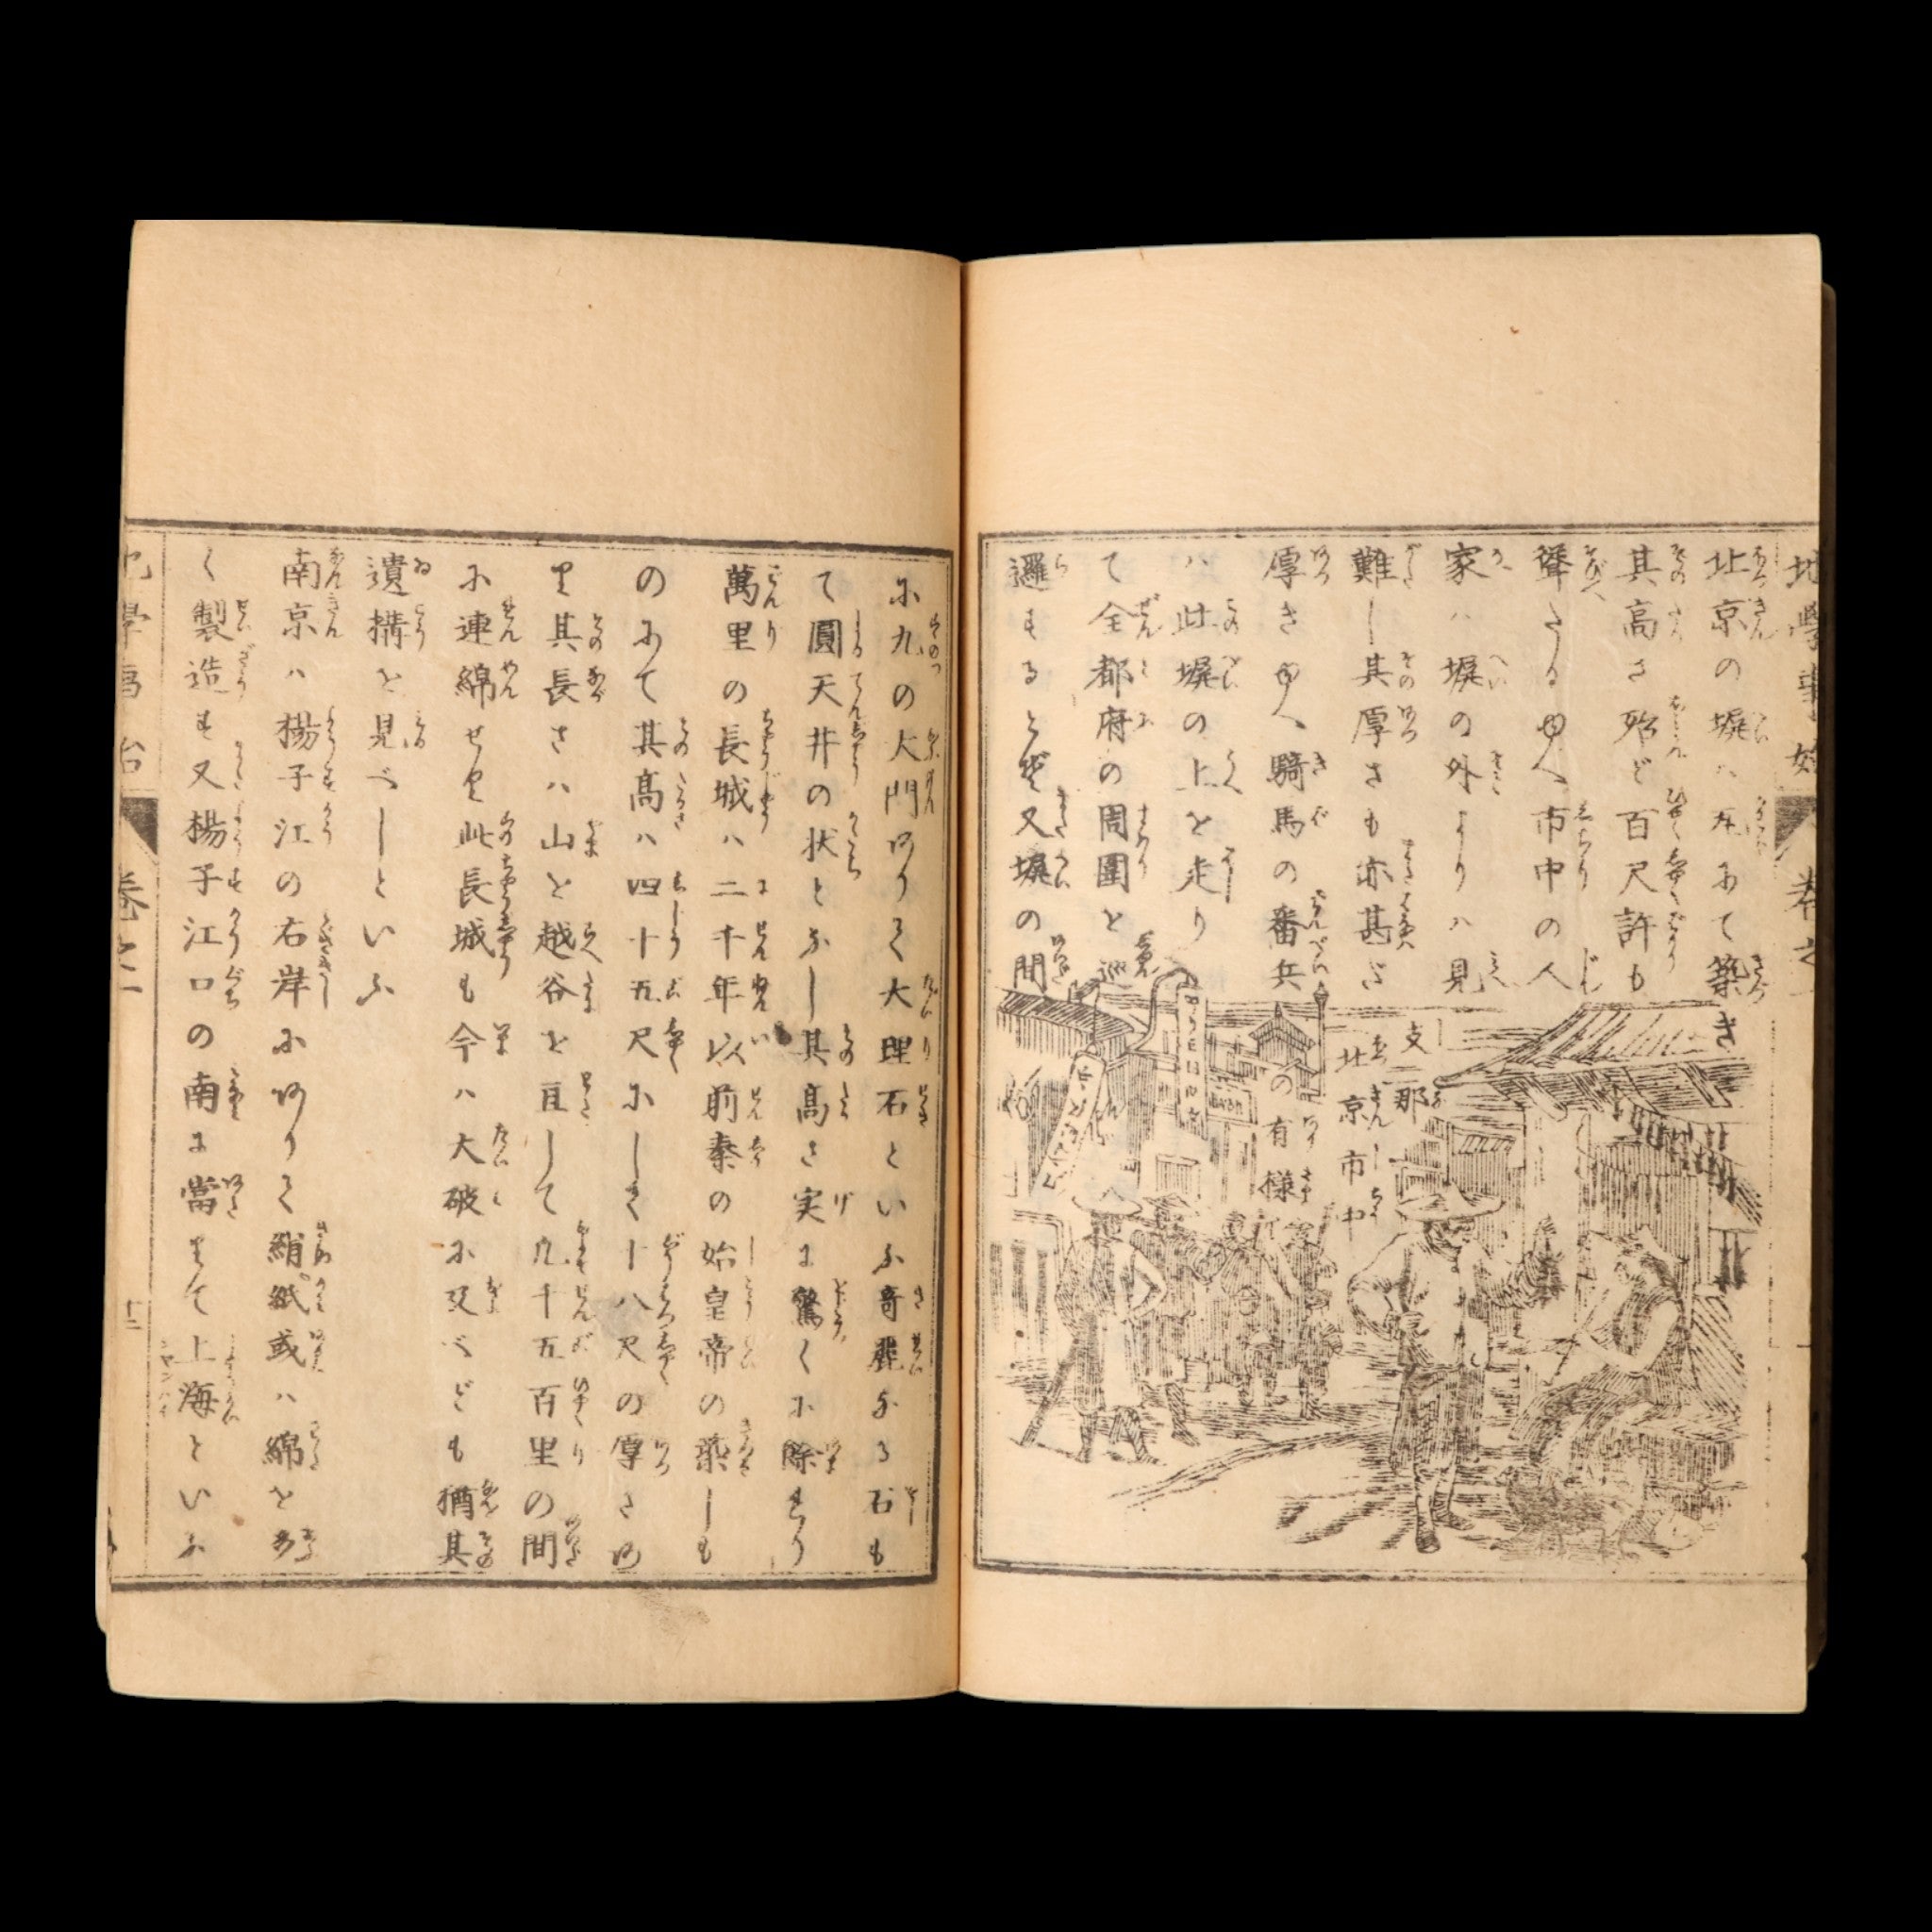 地學事始
卷之一
北京の塀ハ瓦にて築き
其高さ殆ど百尺許も
聳たる由へ市中の人
家ハ塀の外よりハ見
難し其厚さも亦甚ざ
厚き由へ騎馬の番兵
ハ此塀の上を走り
て全都府の周圍を巡
邏するとぞ又塀の間
支那
北京市中
の有様
に九の大門ありて大理石といふ奇麗なる石も
て圓天井の状となし其高さ実に驚くに餘まり
萬里の長城ハ二千年以前秦の始皇帝の築しも
のにて其高ハ四十五尺にしき十八尺の厚さあ
り其長さハ山を越谷を亘して凡千五百里の間
に連綿せり此長城も今ハ大破に及べども猶其
遺構を見べしといふ
南京ハ揚子江の右岸にありて絹紙或ハ綿を多
く製造す又揚子江口の南に當りて上海といふ
卷之一
十二